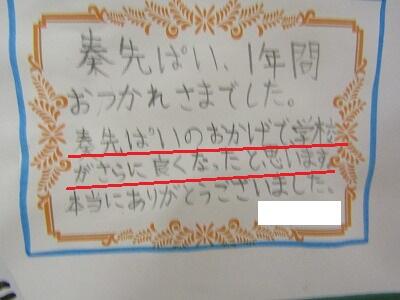 秦先ぱい、1年間
おつかれさまでした。
秦先ぱいのおかげで、学校
がさらに良くなったと思います
本当にありがとうございました、